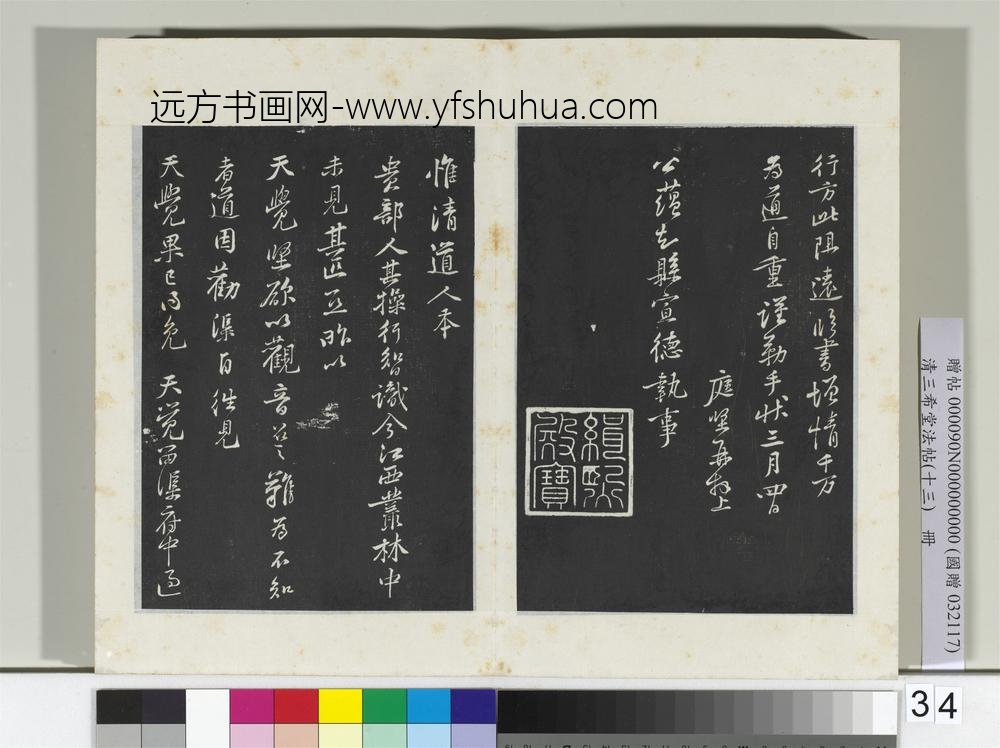 远方书画网-www.yfshuhua.com
行方此阻遠臨書增情千万
為道自重謹勒手狀三月四日
庭堅再拜上
公蘊知縣宣德執事
緝熙
殿寶
惟清道人本
貴部人其操行智識今江西叢林中
未見其匹亞昨以
天覺堅欲以觀音召之難為不知
者道因勸渠自往見
天覺果已得免 天覺留渠府中過
贈帖 000090N000000000 (國贈 032117)
清三希堂法帖(十三) 冊
34